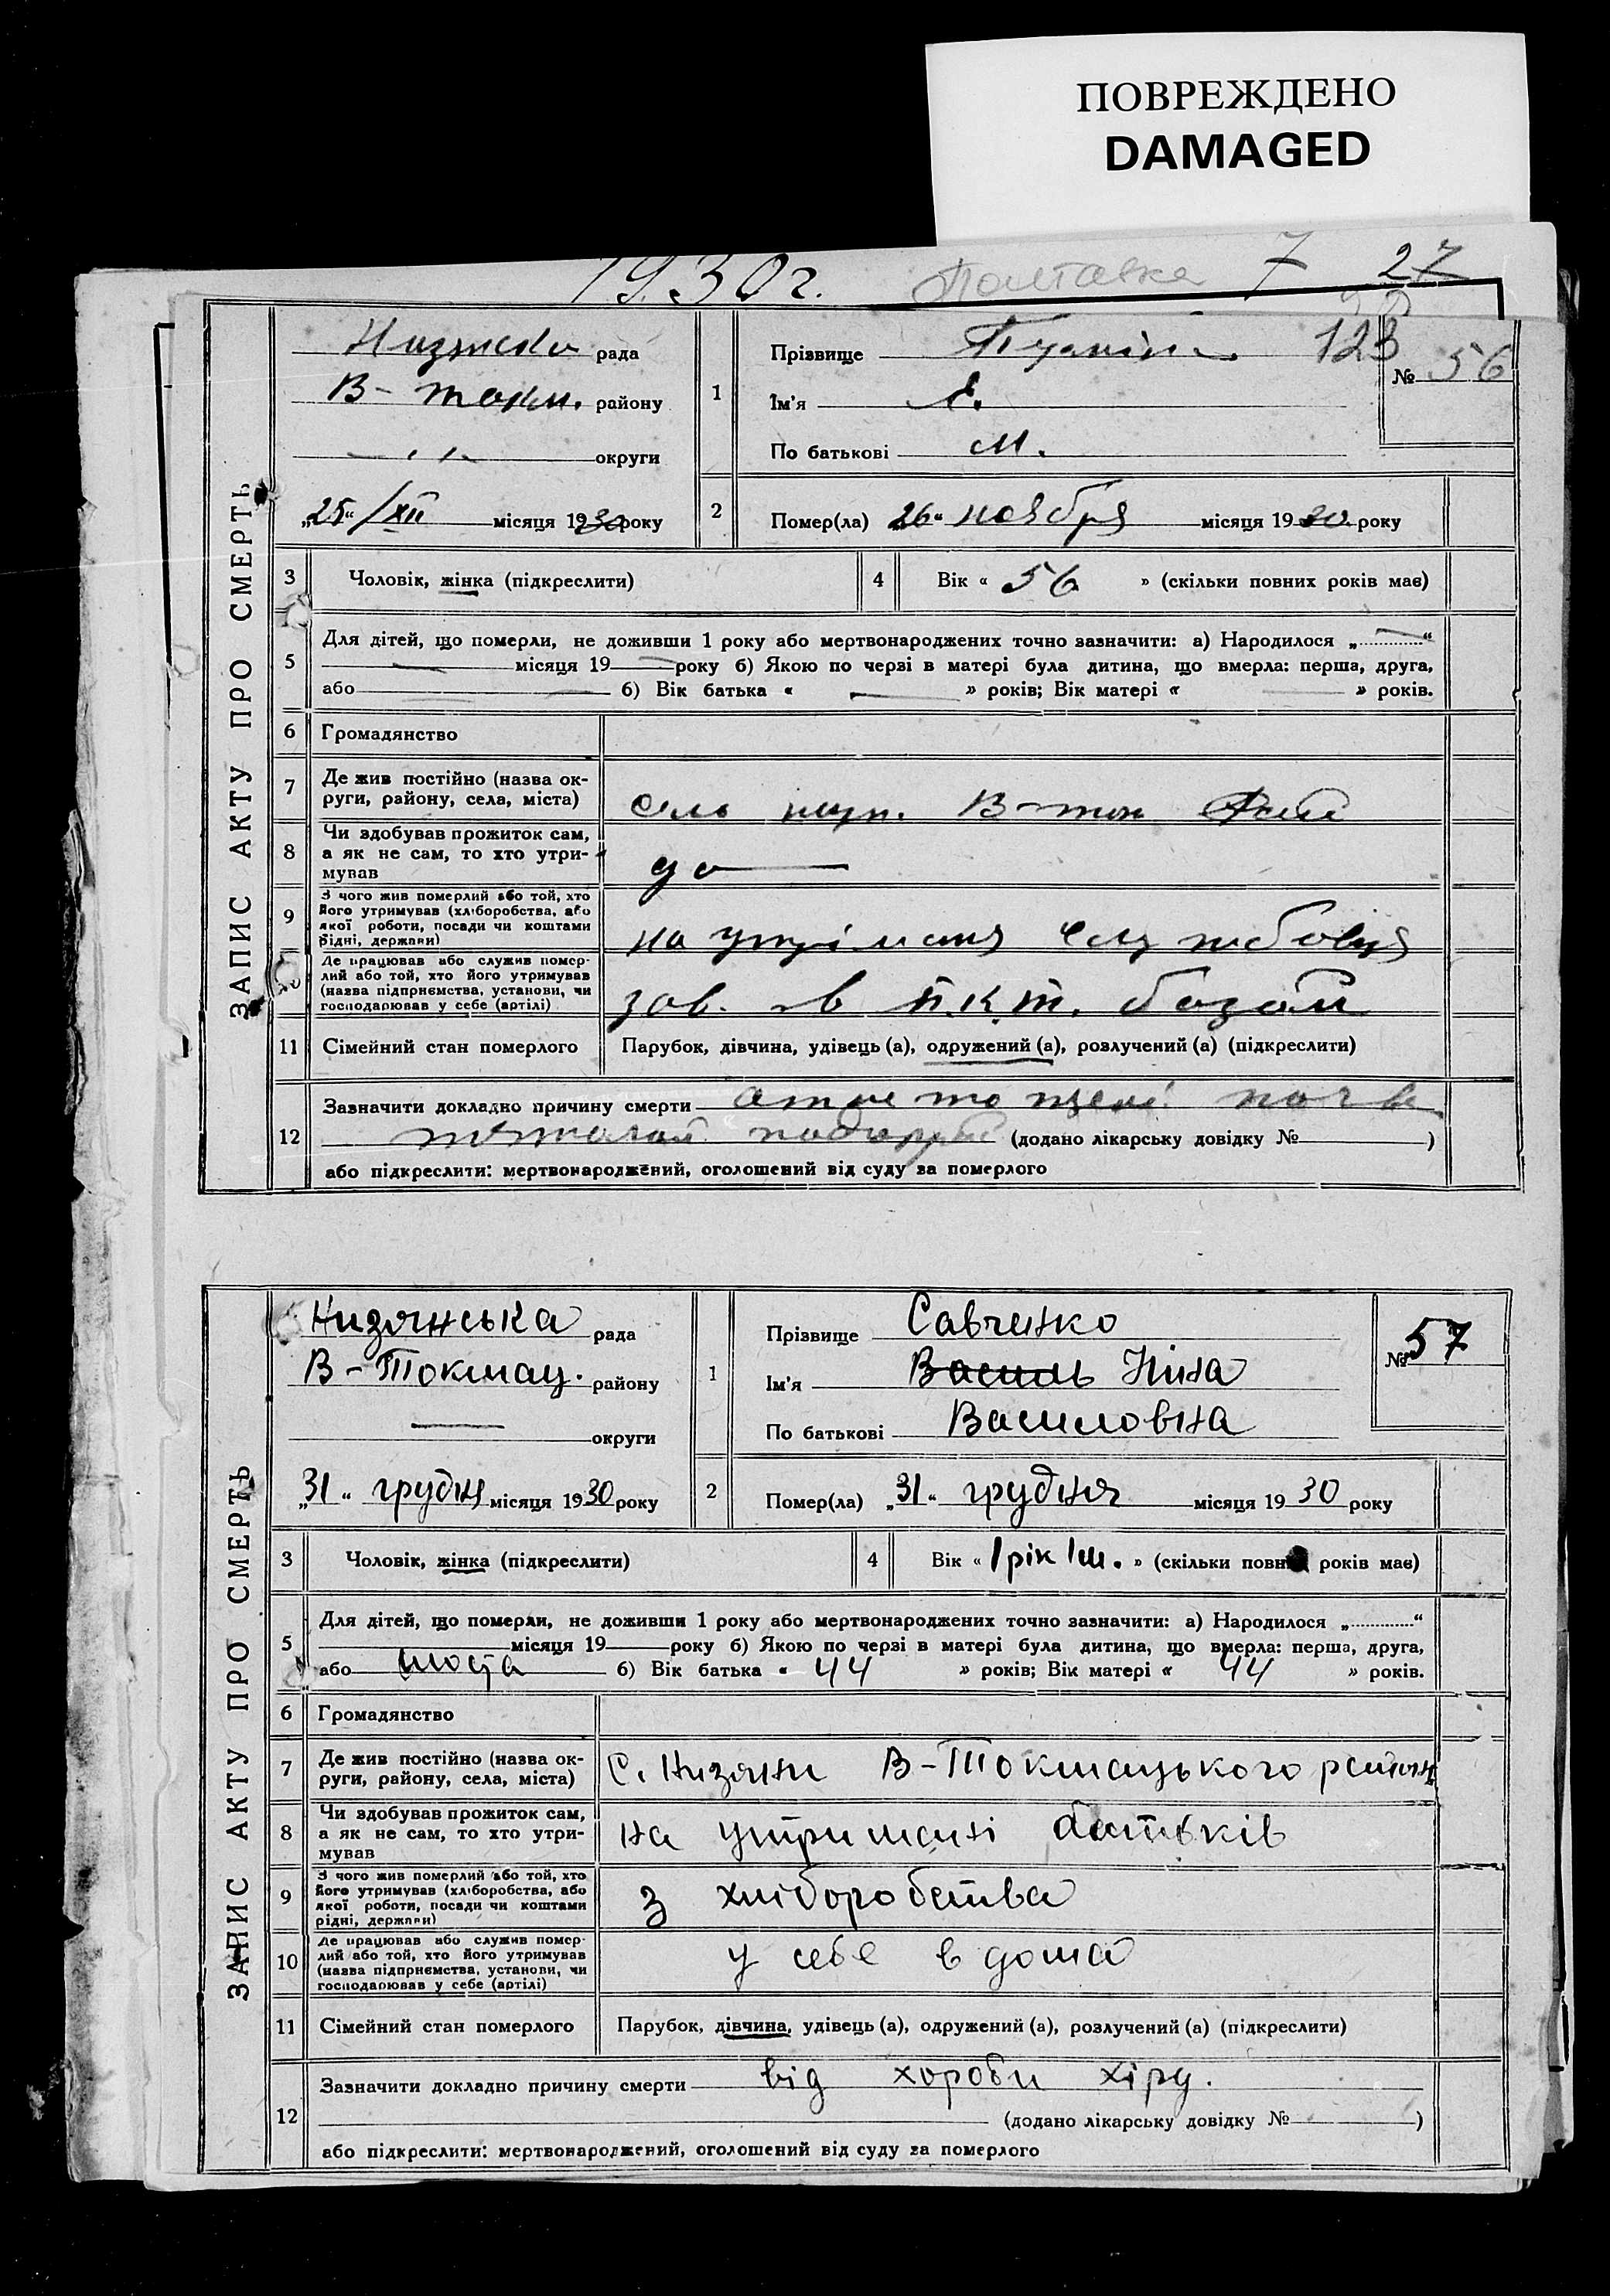 ПОВРЕЖДЕНО
DAMAGED
1930 г. Полтавка 7 27
123
ЗАПИС АКТУ ПРО СМЕРТЬ
рада
В-токм. району
округи
„25“ /XII місяця 1930 року
1
Прізвище
Ім'я
По батькові М.
№ 56
2
Помер(ла) 26“ ноября місяця 1930 року
3 Чоловік, жінка (підкреслити)
4 Вік « 56 » (скільки повних років має)
5 Для дітей, що померли, не доживши 1 року або мертвонароджених точно зазначити: а) Народилося „ “
місяця 19 року б) Якою по черзі в матері була дитина, що вмерла: перша, друга,
або б) Вік батька « » років; Вік матері « » років.
6 Громадянство
7 Де жив постійно (назва ок-
руги, району, села, міста)
В-ток
8 Чи здобував прожиток сам,
а як не сам, то хто утри-
мував
9 З чого жив померлий або той, хто
його утримував (хліборобства, або
якої роботи, посади чи коштами
рідні, держави)
на
10 Де працював або служив помер-
лий або той, хто його утримував
(назва підприємства, установи, чи
господарював у себе (артілі)
зав.
11 Сімейний стан померлого Парубок, дівчина, удівець (а), одружений (а), розлучений (а) (підкреслити)
12 Зазначити докладно причину смерти
(додано лікарську довідку № )
або підкреслити: мертвонароджений, оголошений від суду за померлого
ЗАПИС АКТУ ПРО СМЕРТЬ
Низянська рада
В-Токмац. району
округи
„31“ грудня місяця 1930 року
1
Прізвище Савченко
Ім'я Василь Ніна
По батькові Василовна
№ 57
2
Помер(ла) „31“ грудня місяця 1930 року
3 Чоловік, жінка (підкреслити)
4 Вік « 1 рік 1 м. » (скільки повних років має)
5 Для дітей, що померли, не доживши 1 року або мертвонароджених точно зазначити: а) Народилося „ “
місяця 19 року б) Якою по черзі в матері була дитина, що вмерла: перша, друга,
або шоста б) Вік батька « 44 » років; Вік матері « 44 » років.
6 Громадянство
7 Де жив постійно (назва ок-
руги, району, села, міста)
С. Низяни В-Токмацького району
8 Чи здобував прожиток сам,
а як не сам, то хто утри-
мував
на утримані батьків
9 З чого жив померлий або той, хто
його утримував (хліборобства, або
якої роботи, посади чи коштами
рідні, держави)
з хліборобства
10 Де працював або служив помер-
лий або той, хто його утримував
(назва підприємства, установи, чи
господарював у себе (артілі)
у себе в дома
11 Сімейний стан померлого Парубок, дівчина, удівець (а), одружений (а), розлучений (а) (підкреслити)
12 Зазначити докладно причину смерти від хороби хіру.
(додано лікарську довідку № )
або підкреслити: мертвонароджений, оголошений від суду за померлого